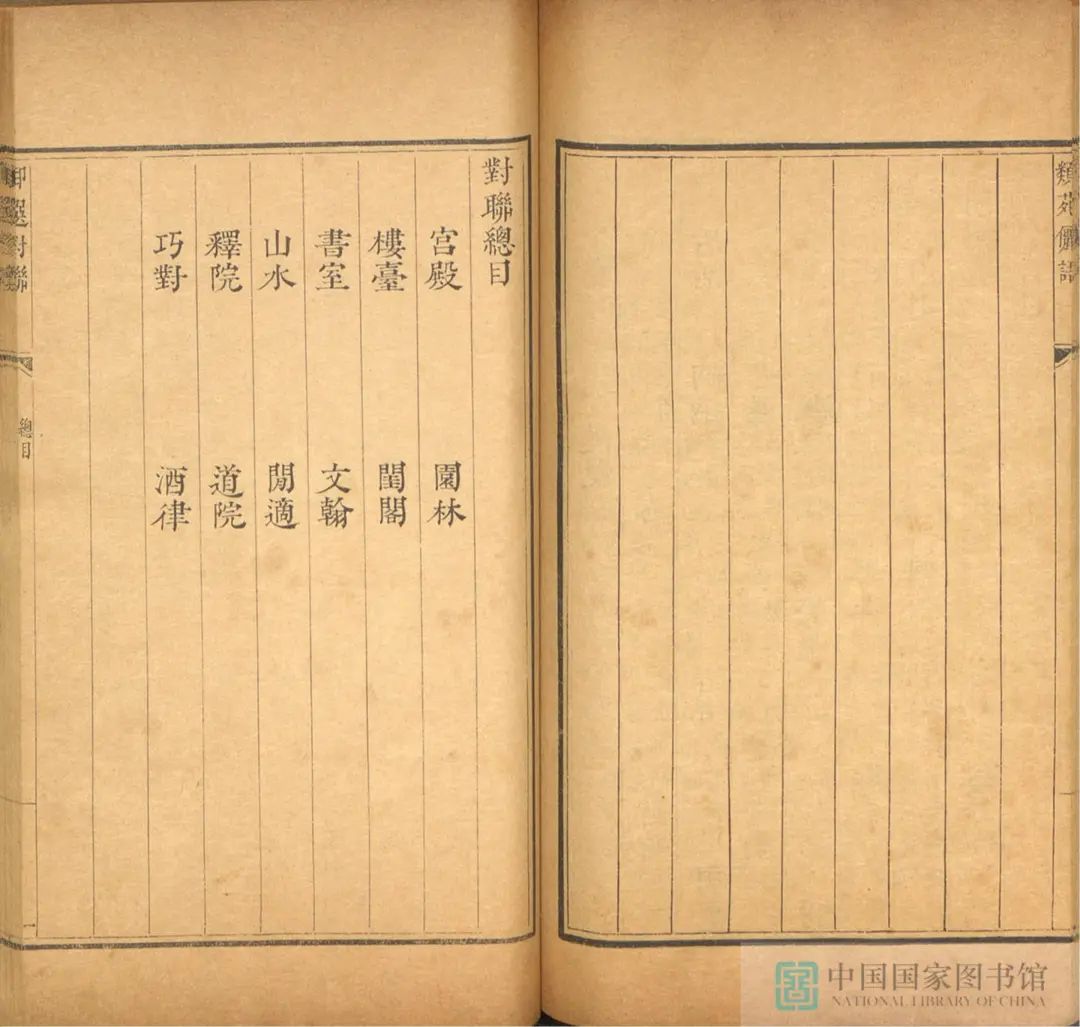 類苑儷語
對聯總目
宮殿 園林
樓臺 閨閣
書室 文翰
山水 閒適
釋院 道院
巧對 酒律
選對聯
總目
中国国家图书馆
NATIONAL LIBRARY OF CHINA